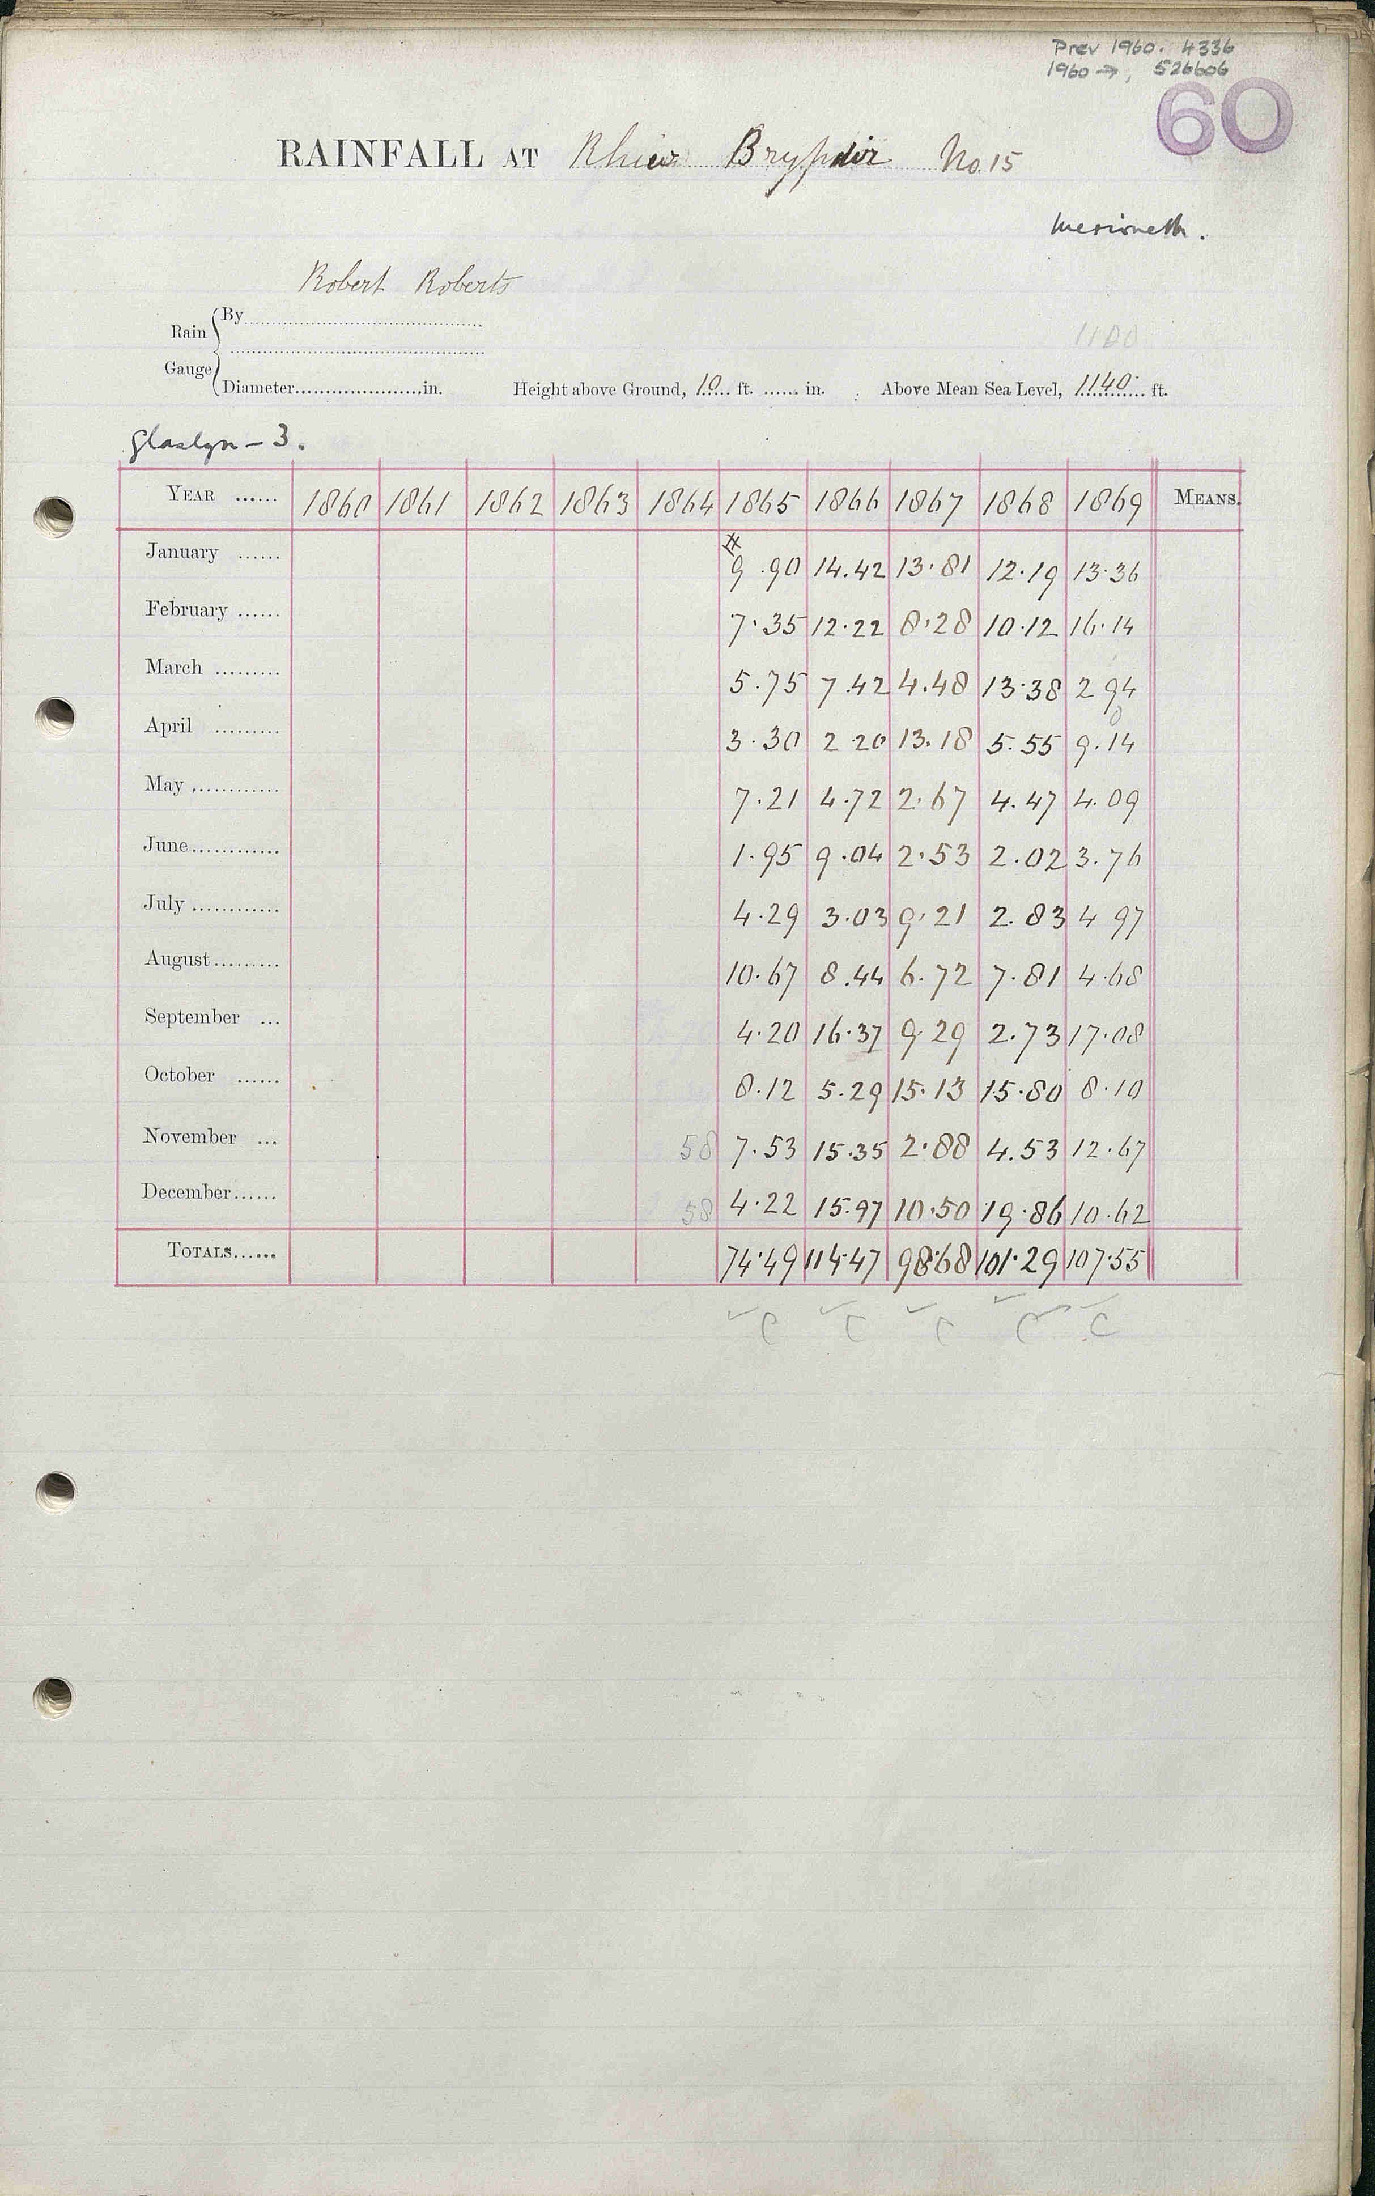 Prev 1960. 4336
1960 →, 526606
60
RAINFALL AT Rhiw Bryfdir No. 15
Merioneth.
Robert Roberts
Rain Gauge { By
1100
Diameter in. Height above Ground, 10 ft. in. Above Mean Sea Level, 1140 ft.
Glaslyn - 3.
YEAR 1860 1861 1862 1863 1864 1865 1866 1867 1868 1869 MEANS.
January 9.90 14.42 13.81 12.19 13.36
February 7.35 12.22 8.28 10.12 16.14
March 5.75 7.42 4.48 13.38 2 94
April 3.30 2 20 13.18 5.55 9.14
May 7.21 4.72 2.67 4.47 4.09
June 1.95 9.04 2.53 2.02 3.76
July 4.29 3.03 9.21 2.83 4 97
August 10.67 8.44 6.72 7.81 4.68
September 4.20 16.37 9.29 2.73 17.08
October 8.12 5.29 15.13 15.80 8.10
November 58 7.53 15.35 2.88 4.53 12.67
December 58 4.22 15.97 10.50 19.86 10.62
TOTALS 74.49 114.47 98.68 101.29 107.55
✓ C ✓ C ✓ C ✓ C ✓ C